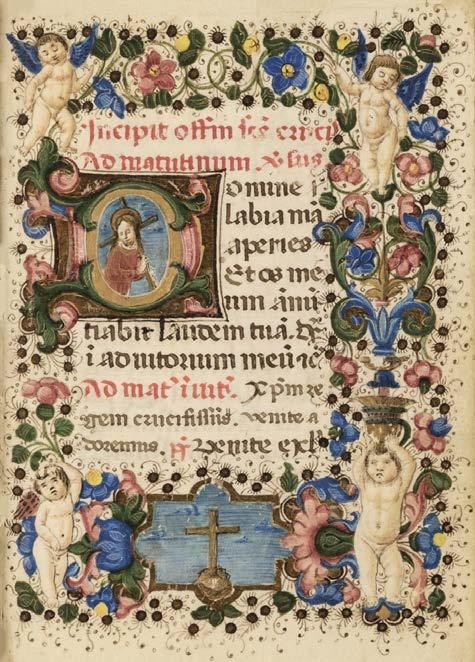 Incipit offm sce crucis
Ad matutinum. Xsus
Domine i
labia ma
aperies
Et os me
um annū
tiabit laudem tuā. D̄s
i adiutorium meū ae
Ad mat̄ īuit̄. Xp̄m re
gem crucifissūs. venite a
doremus. p̄s Venite exl